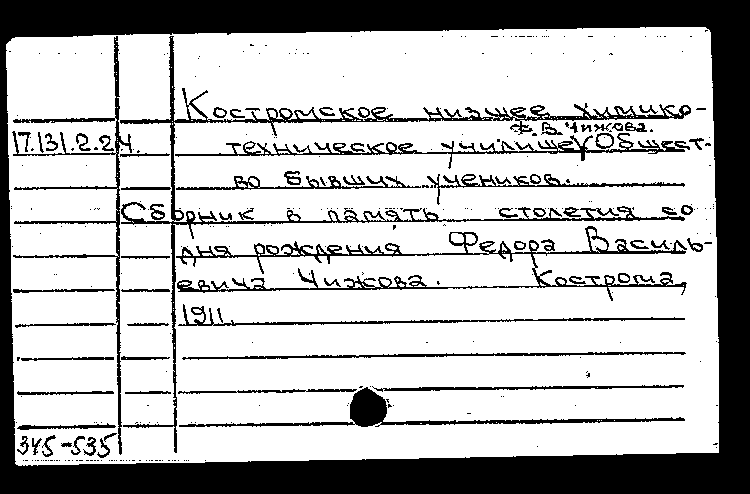 Костромское низшее химико-
Ф. В. Чижова.
17.131.2.24. техническое училище Общест-
во бывших учеников.
Сборник в память столетия со
дня рождения Федора Василь-
евича Чижова. Кострома,
1911.
345-535